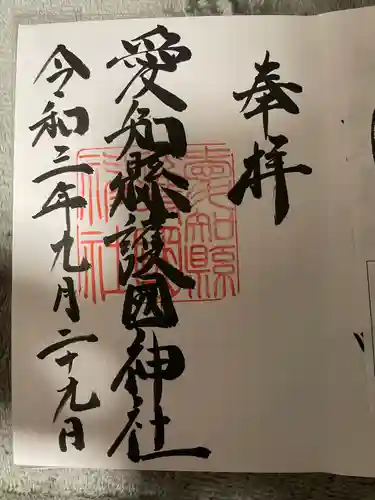 奉拝
愛知縣護國神社
令和三年九月二十九日
愛知縣
護國
神社